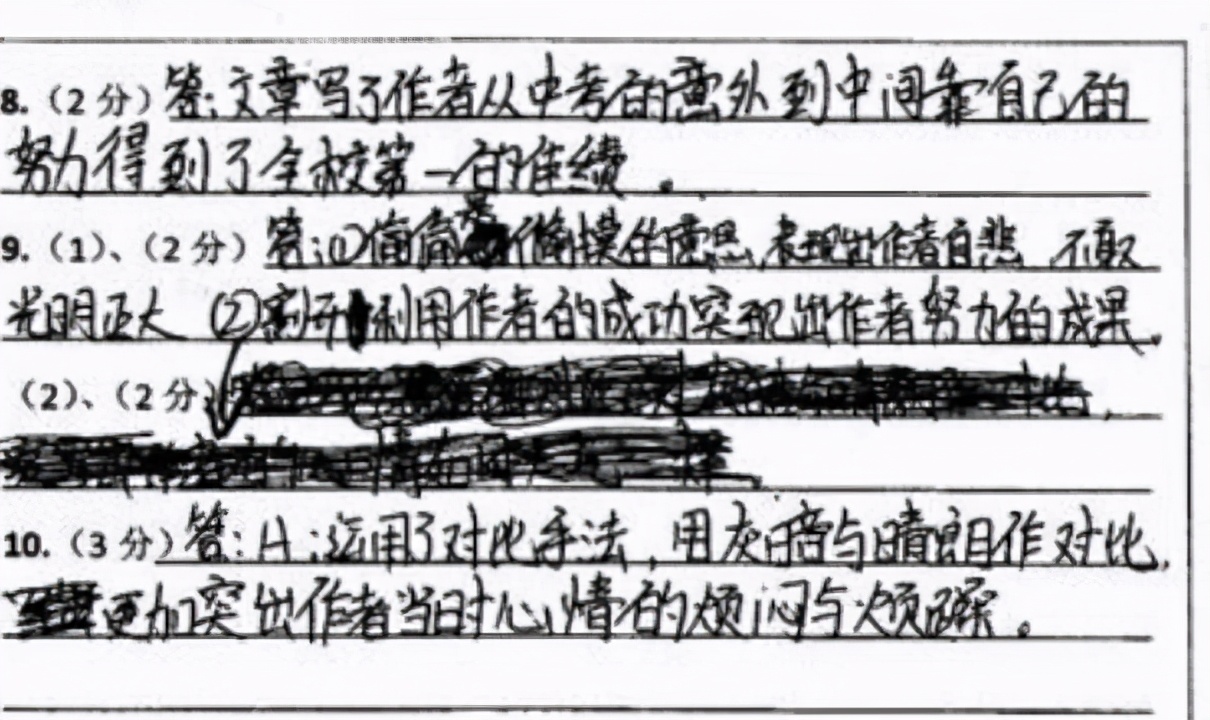 8.（2分）答:文章写了作者从中考的意外到中间靠自己的
努力得到了全校第一的佳绩。
9.（1）、（2分）答:①偷偷 偷摸的意思,表现出作者自悲 不取
光明正大 ②割开 利用作者的成功突现出作者努力的成果.
（2）、（2分）
10.（3分）答: A :运用了对比手法,用灰暗与晴朗作对比,
更加突出作者当时心情的烦闷与烦躁。